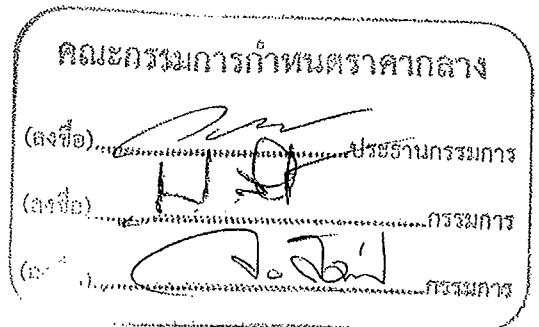 คณะกรรมการกำหนดราคากลาง
(ลงชื่อ)..............................ประธานกรรมการ
(ลงชื่อ)..............................กรรมการ
..............................กรรมการ